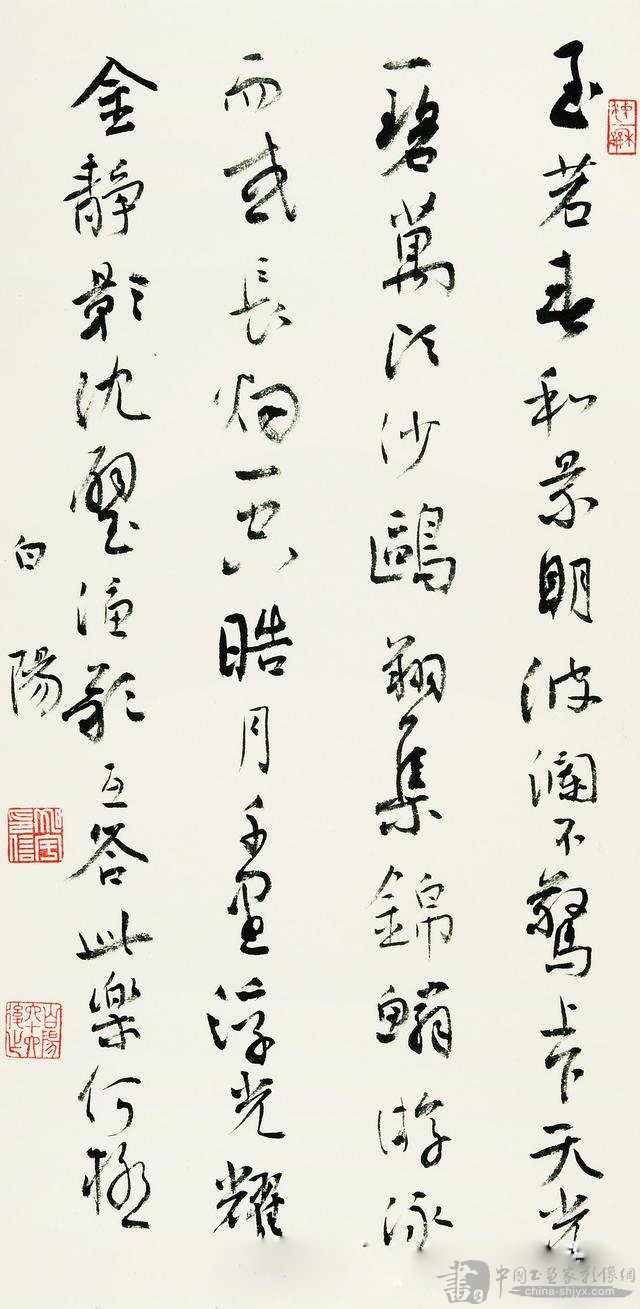 至若春和景明波瀾不驚上下天光
一碧萬頃沙鷗翔集錦鱗游泳
而或長烟一空晧月千里浮光耀
金靜影沈璧漁歌互答此樂何極
白陽
書
中国书画家影像網
china-shjyx.com